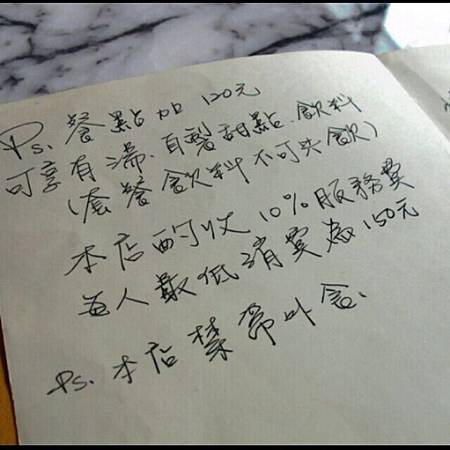 Ps. 餐點加 120元
可享有湯、自製甜點、飲料
(套餐飲料不可共飲)
本店酌收 10% 服務費
每人最低消費為 150元
Ps. 本店禁帶外食、